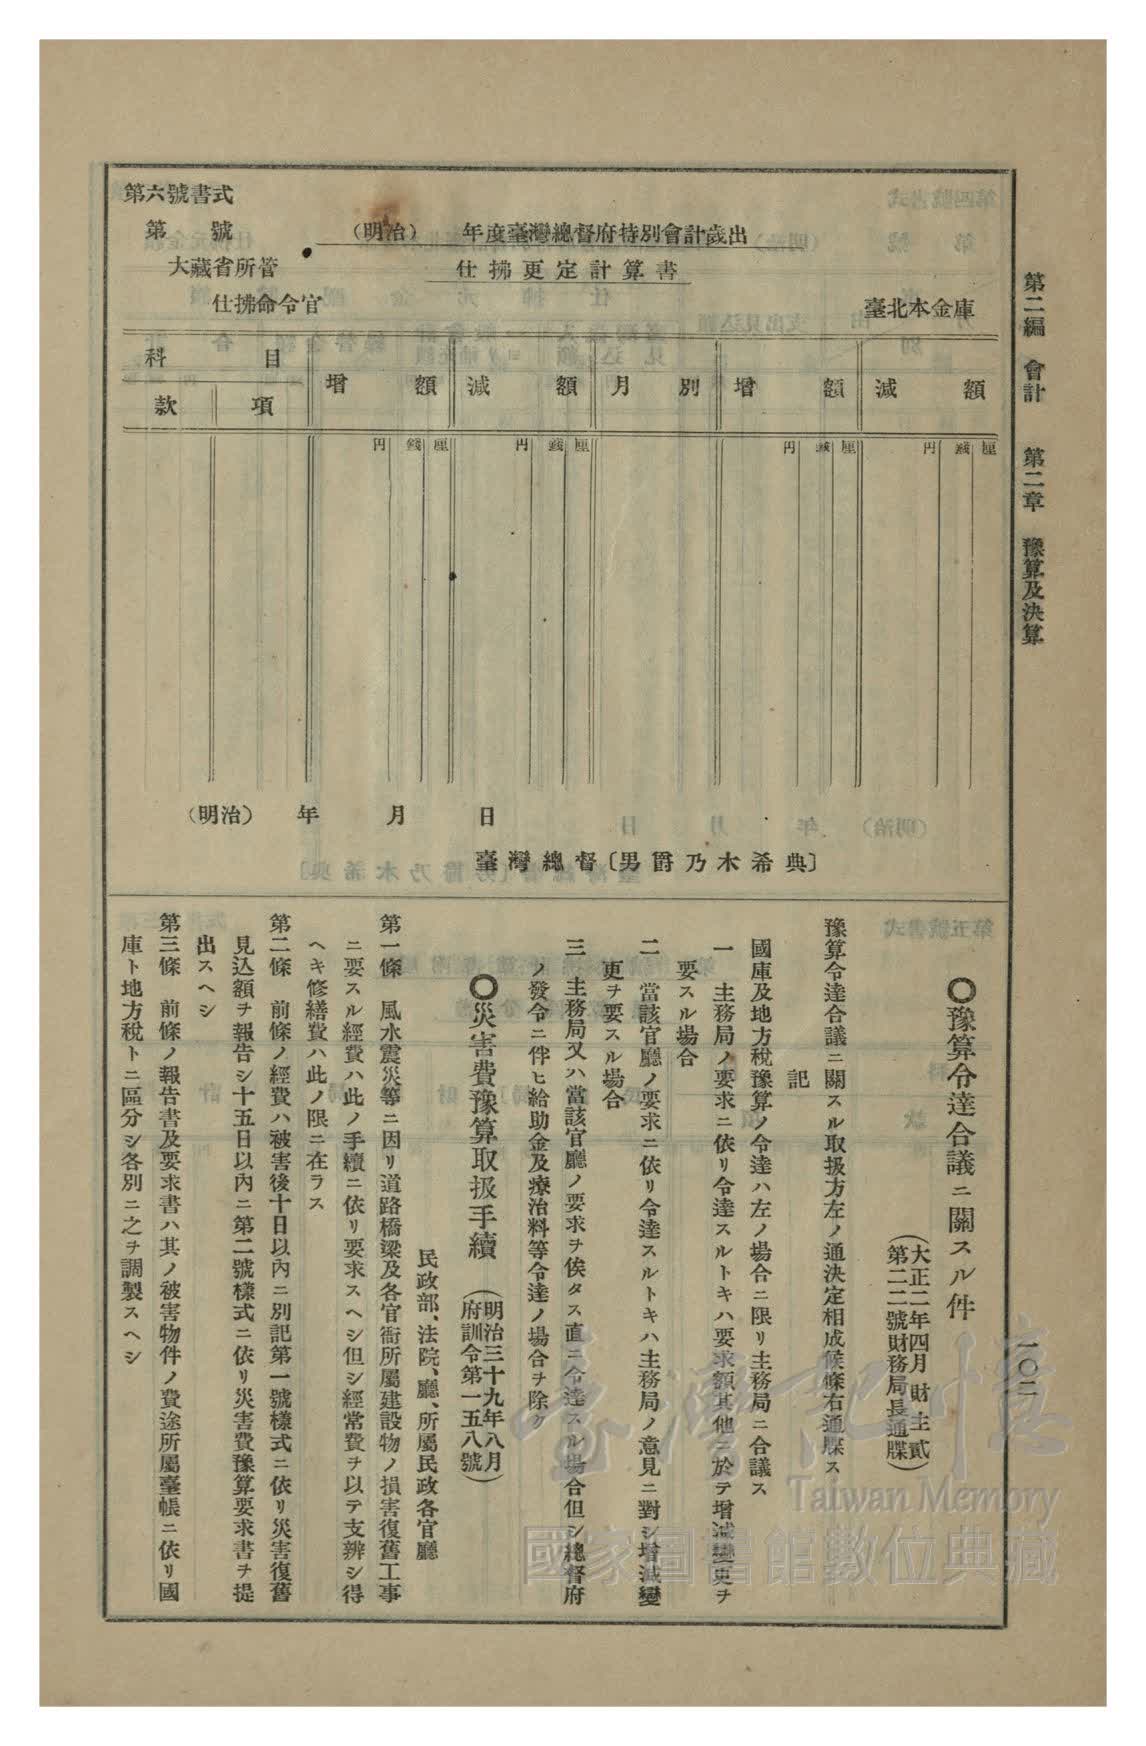 第二編　會計　　第二章　豫算及決算
一〇二
第六號書式
第　　號
（明治）　　年度臺灣總督府特別會計歲出
大藏省所管
仕拂更定計算書
仕拂命令官
臺北本金庫
科　　目　　增　　額　　減　　額　　月　　別　　增　　額　　減　　額
款　　項
円　錢　厘　　円　錢　厘　　円　錢　厘　　円　錢　厘
（明治）　　年　　月　　日
臺灣總督〔男爵乃木希典〕
〇豫算令達合議ニ關スル件
（大正二年四月　財主貳
第二二號財務局長通牒）
豫算令達合議ニ關スル取扱方左ノ通決定相成候條右通牒ス
記
國庫及地方稅豫算ノ令達ハ左ノ場合ニ限リ主務局ニ合議ス
一　主務局ノ要求ニ依リ令達スルトキハ要求額其他ニ於テ增減變更ヲ
要スル場合
二　當該官廳ノ要求ニ依リ令達スルトキハ主務局ノ意見ニ對シ增減變
更ヲ要スル場合
三　主務局又ハ當該官廳ノ要求ヲ俟タス直ニ令達スル場合但シ總督府
ノ發令ニ伴ヒ給助金及療治料等令達ノ場合ヲ除ク
〇災害費豫算取扱手續
（明治三十九年八月
府訓令第一五八號）
民政部、法院、廳、所屬民政各官廳
第一條　風水震災等ニ因リ道路橋梁及各官衙所屬建設物ノ損害復舊工事
ニ要スル經費ハ此ノ手續ニ依リ要求スヘシ但シ經常費ヲ以テ支辨シ得
ヘキ修繕費ハ此ノ限ニ在ラス
第二條　前條ノ經費ハ被害後十日以內ニ別記第一號樣式ニ依リ災害復舊
見込額ヲ報告シ十五日以內ニ第二號樣式ニ依リ災害費豫算要求書ヲ提
出スヘシ
第三條　前條ノ報告書及要求書ハ其ノ被害物件ノ費途所屬臺帳ニ依リ國
庫ト地方稅トニ區分シ各別ニ之ヲ調製スヘシ
臺灣記憶
Taiwan Memory
國家圖書館數位典藏